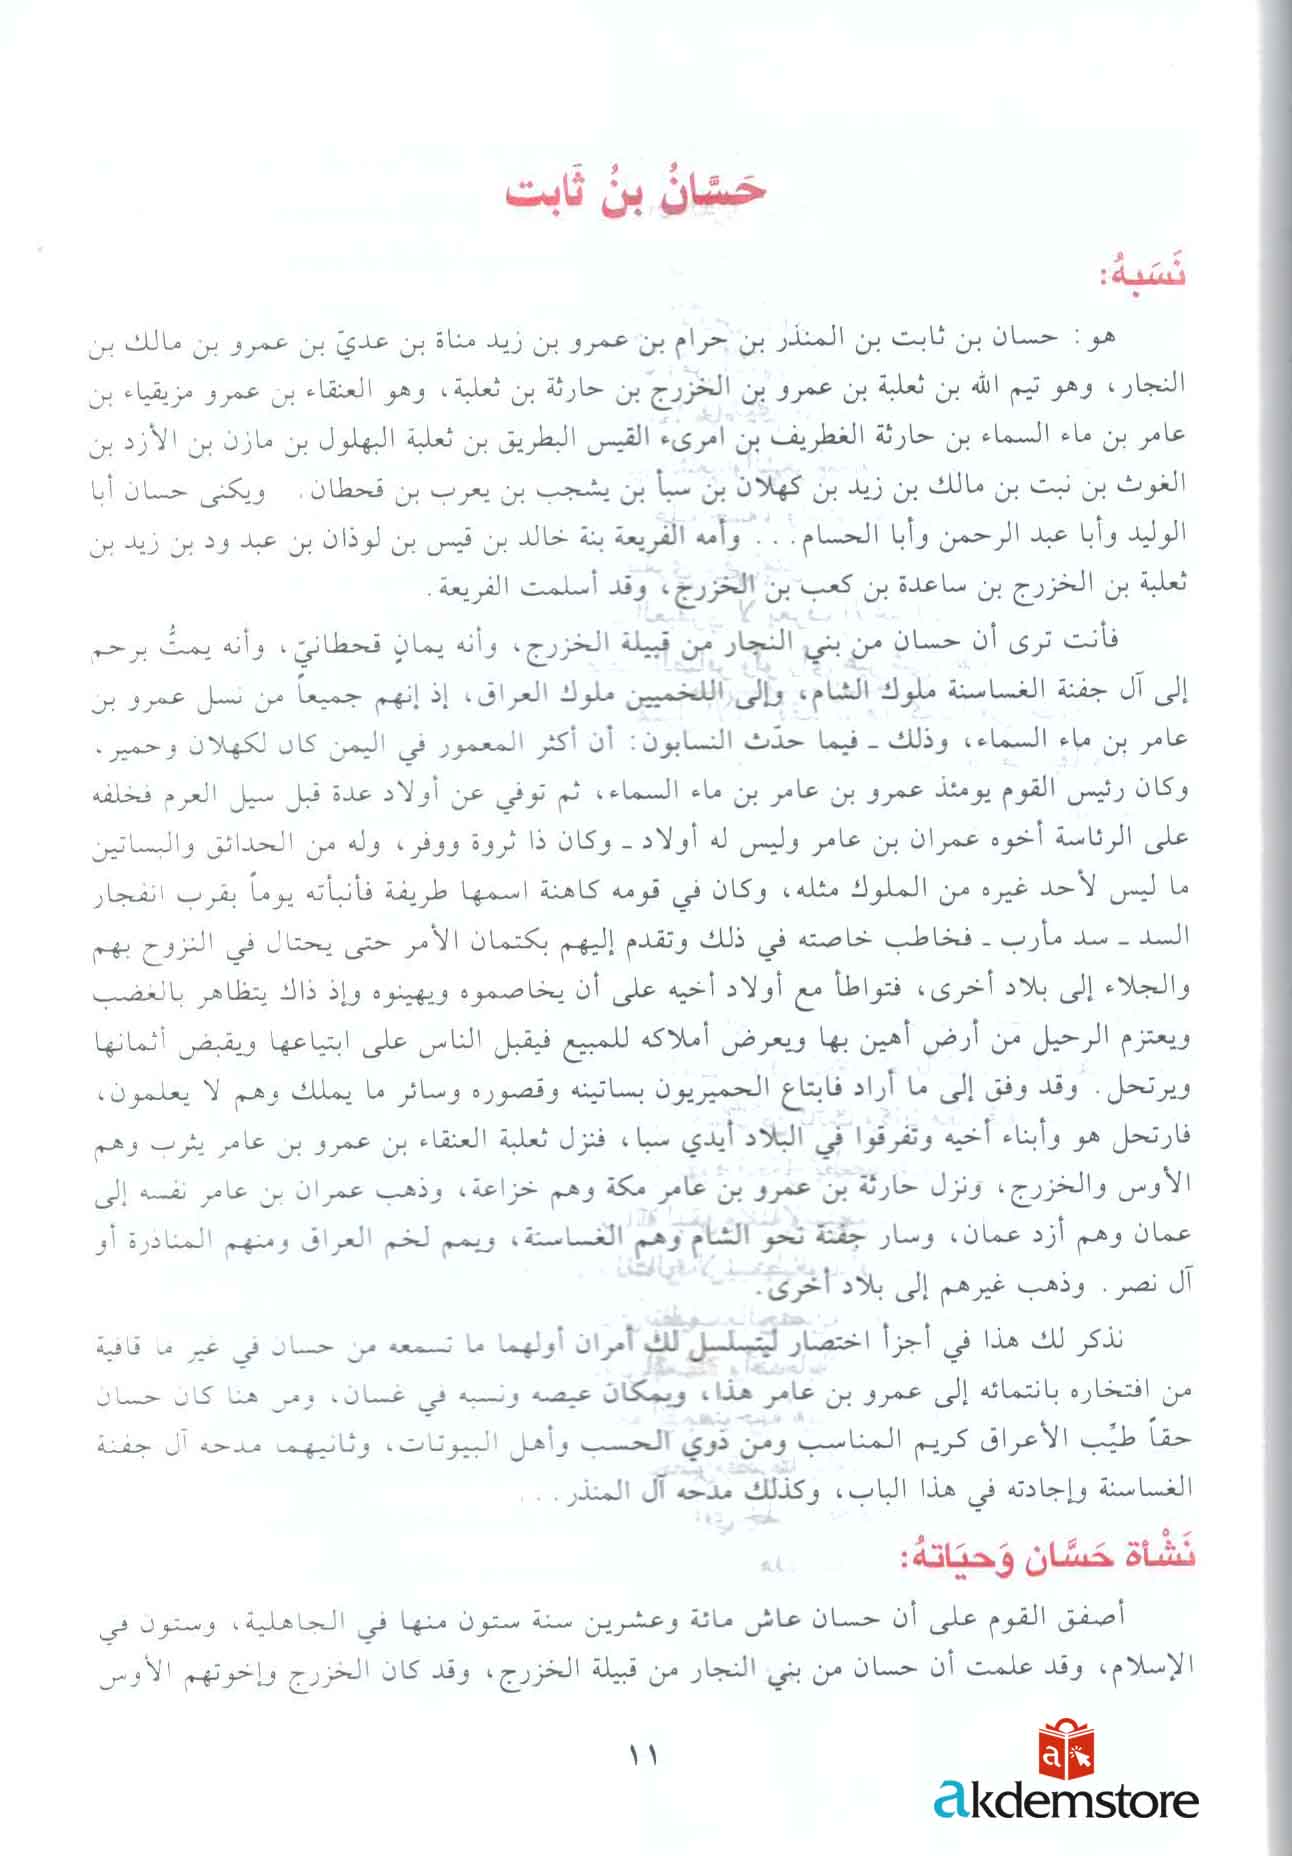 حَسَّانُ بنُ ثَابت
نَسَبهُ:
هو: حسان بن ثابت بن المنذر بن حرام بن عمرو بن زيد مناة بن عديّ بن عمرو بن مالك بن
النجار، وهو تيم الله بن ثعلبة بن عمرو بن الخزرج بن حارثة بن ثعلبة، وهو العنقاء بن عمرو مزيقياء بن
عامر بن ماء السماء بن حارثة الغطريف بن امرىء القيس البطريق بن ثعلبة البهلول بن مازن بن الأزد بن
الغوث بن نبت بن مالك بن زيد بن كهلان بن سبأ بن يشجب بن يعرب بن قحطان. ويكنى حسان أبا
الوليد وأبا عبد الرحمن وأبا الحسام... وأمه الفريعة بنة خالد بن قيس بن لوذان بن عبد ود بن زيد بن
ثعلبة بن الخزرج بن ساعدة بن كعب بن الخزرج، وقد أسلمت الفريعة.
فأنت ترى أن حسان من بني النجار من قبيلة الخزرج، وأنه يمانٍ قحطانيّ، وأنه يمتُّ برحم
إلى آل جفنة الغساسنة ملوك الشام، وإلى اللخميين ملوك العراق، إذ إنهم جميعاً من نسل عمرو بن
عامر بن ماء السماء، وذلك ـ فيما حدّث النسابون: أن أكثر المعمور في اليمن كان لكهلان وحمير،
وكان رئيس القوم يومئذ عمرو بن عامر بن ماء السماء، ثم توفي عن أولاد عدة قبل سيل العرم فخلفه
على الرئاسة أخوه عمران بن عامر وليس له أولاد ـ وكان ذا ثروة ووفر، وله من الحدائق والبساتين
ما ليس لأحد غيره من الملوك مثله، وكان في قومه كاهنة اسمها طريفة فأنبأته يوماً بقرب انفجار
السد ـ سد مأرب ـ فخاطب خاصته في ذلك وتقدم إليهم بكتمان الأمر حتى يحتال في النزوح بهم
والجلاء إلى بلاد أخرى، فتواطأ مع أولاد أخيه على أن يخاصموه ويهينوه وإذ ذاك يتظاهر بالغضب
ويعتزم الرحيل من أرض أهين بها ويعرض أملاكه للمبيع فيقبل الناس على ابتياعها ويقبض أثمانها
ويرتحل. وقد وفق إلى ما أراد فابتاع الحميريون بساتينه وقصوره وسائر ما يملك وهم لا يعلمون،
فارتحل هو وأبناء أخيه وتفرقوا في البلاد أيدي سبا، فنزل ثعلبة العنقاء بن عمرو بن عامر يثرب وهم
الأوس والخزرج، ونزل حارثة بن عمرو بن عامر مكة وهم خزاعة، وذهب عمران بن عامر نفسه إلى
عمان وهم أزد عمان، وسار جفنة نحو الشام وهم الغساسنة، ويمم لخم العراق ومنهم المناذرة أو
آل نصر. وذهب غيرهم إلى بلاد أخرى.
نذكر لك هذا في أجزأ اختصار ليتسلسل لك أمران أولهما ما تسمعه من حسان في غير ما قافية
من افتخاره بانتمائه إلى عمرو بن عامر هذا، وبمكان عيصه ونسبه في غسان، ومر هنا كان حسان
حقاً طيِّب الأعراق كريم المناسب ومن ذوي الحسب وأهل البيوتات، وثانيهما مدحه آل جفنة
الغساسنة وإجادته في هذا الباب، وكذلك مدحه آل المنذر...
نَشْأة حَسَّان وَحيَاتهُ:
أصفق القوم على أن حسان عاش مائة وعشرين سنة ستون منها في الجاهلية، وستون في
الإسلام، وقد علمت أن حسان من بني النجار من قبيلة الخزرج، وقد كان الخزرج وإخوتهم الأوس
١١
a
akdemstore